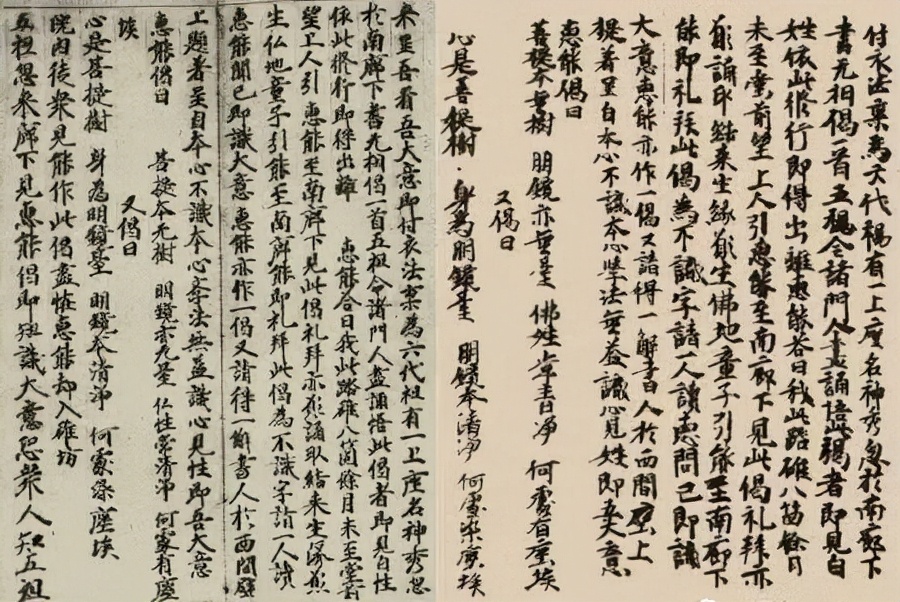 付衣法稟為六代褐有一上座名神秀忽於南廊下
書无相偈一首五褐令諸門人盡誦悟此褐者即見白
姓依此修行即得出離惠能答曰我此踏碓八箇餘月
未至堂前望上人引惠能至南廊下見此偈礼拜亦
願誦取結來生緣願生佛地童子引能至南廊下
能即礼拜此偈為不識字請一人讀惠問已即識
大意惠能亦作一偈又請得一解書人於西間壁上
提著呈白本心不識本心學法無益識心見姓即吾大意
惠能偈曰
菩提本無樹 明鏡亦無臺 佛姓常青淨 何處有塵埃
又偈曰
心是菩提樹 身為明鏡臺 明鏡本清淨 何處染塵埃
來呈吾看吾大意即付衣法稟為六代祖有一上座名神秀忽
於南廊下書无相偈一首五祖令諸門人盡誦悟此偈者即見自性
依此修行即得出離 惠能答曰我此踏碓八箇餘月未至堂前
望上人引惠能至南廊下見此偈礼拜亦願誦取結來生緣願
生仏地童子引能至南廊能即礼拜此偈為不識字請一人讀
惠能聞已即識大意惠能亦作一偈又請得一解書人於西間壁
上題著呈自本心不識本心學法无益識心見性即吾大意
惠能偈曰 菩提本无樹 明鏡亦无臺 仏性常清淨 何處有塵
埃 又偈曰
心是菩提樹 身為明鏡臺 明鏡本清淨 何處染塵埃
院內徒眾見能作此偈盡怪惠能却入碓坊
五祖忽來廊下見惠能偈即知識大意恐眾人知五祖